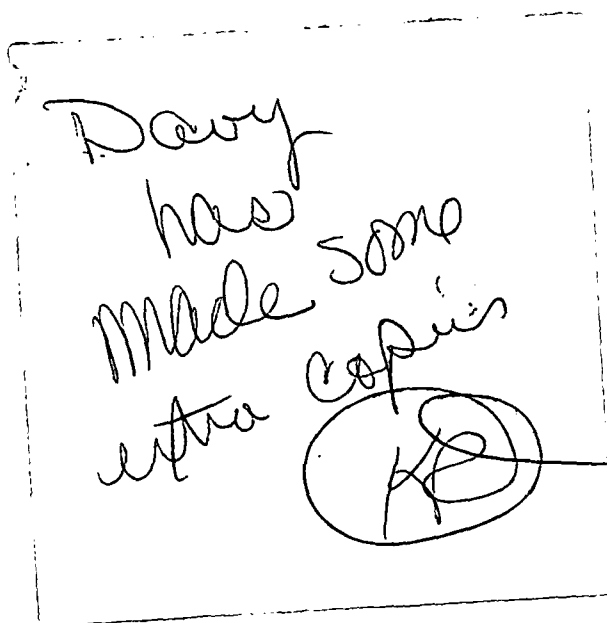 Davy
has
made some
extra copies